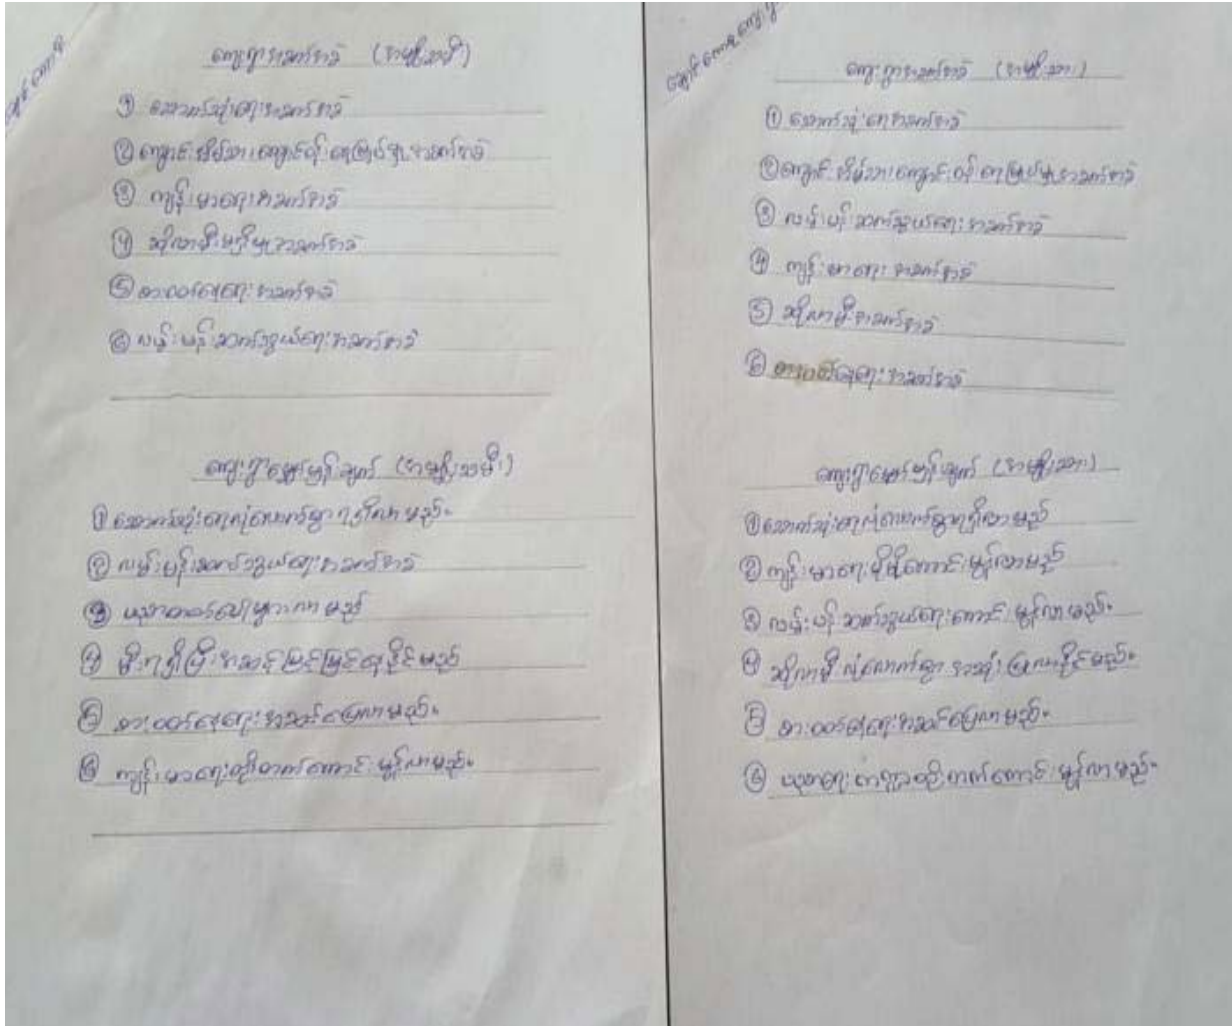 ကျေးရွာအခက်အခဲ (အမျိုးသမီး)
① သောက်သုံးရေအခက်အခဲ
② ကျောင်းအိမ်သာ၊ ကျောင်း
③ ကျန်းမာရေးအခက်အခဲ
④ ဆိုလာမီးမရှိမှုအခက်အခဲ
⑤ စားဝတ်နေရေးအခက်အခဲ
⑥ လမ်းပန်းဆက်သွယ်ရေးအခက်အခဲ
ကျေးရွာမျှော်မှန်းချက် (အမျိုးသမီး)
① သောက်သုံးရေလုံလောက်စွာရရှိလာမည်။
② လမ်းပန်းဆက်သွယ်ရေးအခက်အခဲ
③ လာမည်
④ မီးရရှိပြီးအဆင့်မြင့်မြင့်နေနိုင်မည်
⑤ စားဝတ်နေရေးအဆင်ပြေလာမည်။
⑥ ကျန်းမာရေးတိုးတက်ကောင်းမွန်လာမည်။
ကျေးရွာအခက်အခဲ (အမျိုးသား)
① သောက်သုံးရေအခက်အခဲ
② ကျောင်းအိမ်သာ၊ ကျောင်း
③ လမ်းပန်းဆက်သွယ်ရေးအခက်အခဲ
④ ကျန်းမာရေးအခက်အခဲ
⑤ ဆိုလာမီးအခက်အခဲ
⑥ စားဝတ်နေရေးအခက်အခဲ
ကျေးရွာမျှော်မှန်းချက် (အမျိုးသား)
① သောက်သုံးရေလုံလောက်စွာရရှိလာမည်
② ကျန်းမာရေးပိုမိုကောင်းမွန်လာမည်
③ လမ်းပန်းဆက်သွယ်ရေးကောင်းမွန်လာမည်။
④ ဆိုလာမီးလုံလောက်စွာအသုံးပြုလာနိုင်မည်။
⑤ စားဝတ်နေရေးအဆင်ပြေလာမည်။
⑥ ပညာရေးကဏ္ဍတိုးတက်ကောင်းမွန်လာမည်။